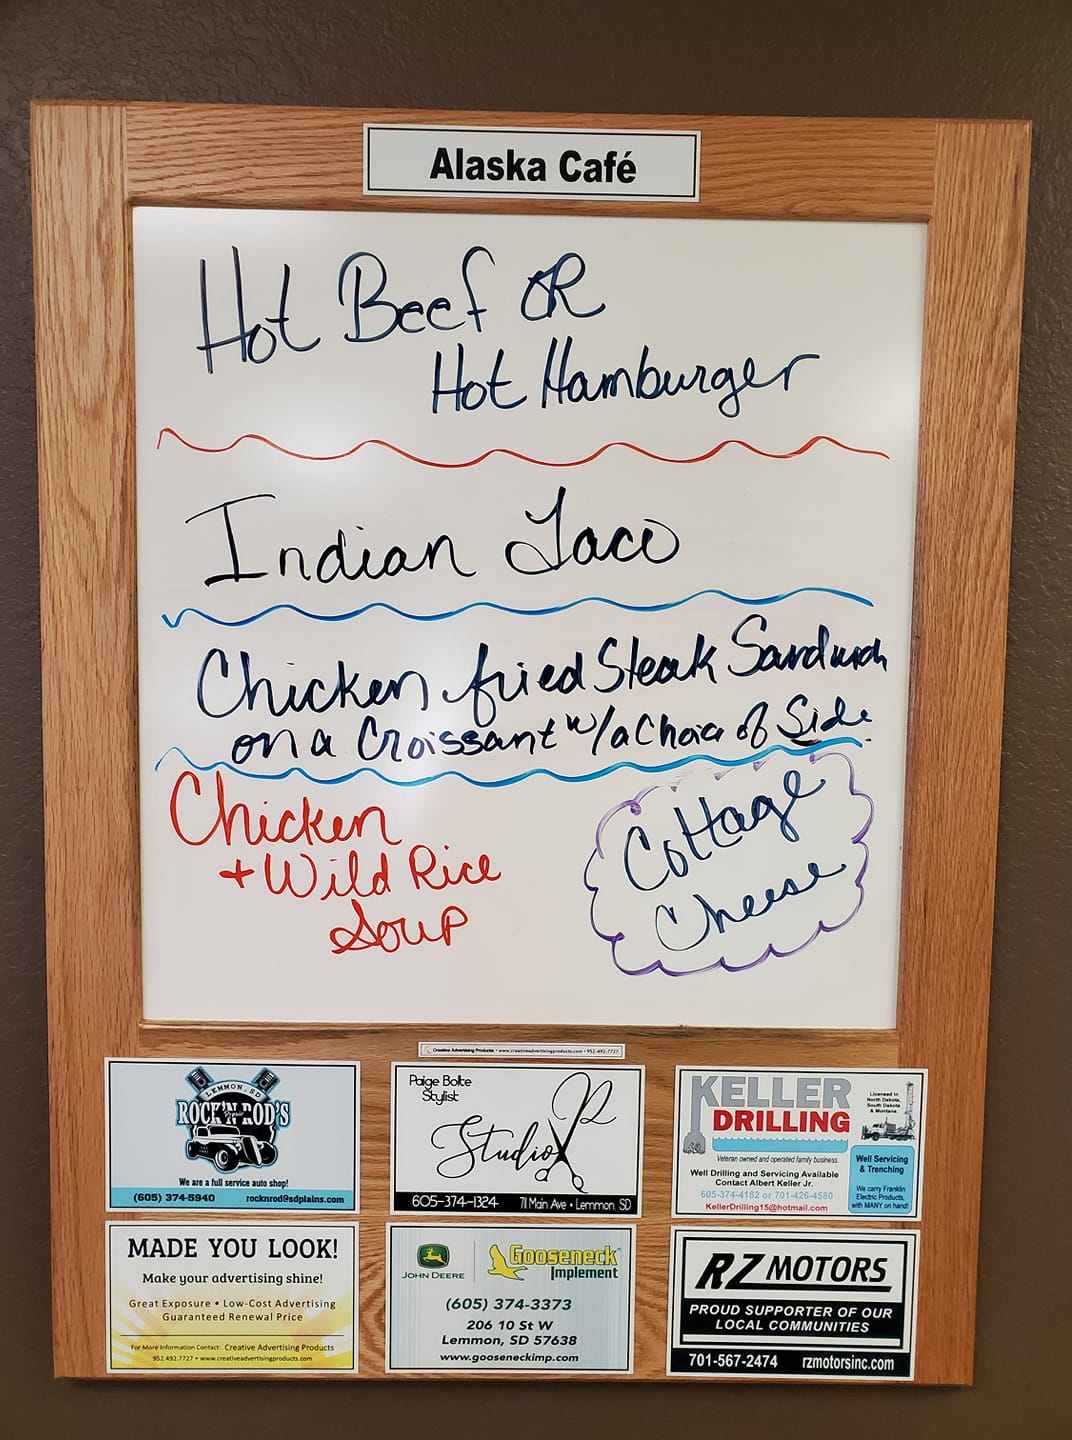 Alaska Café
Hot Beef OR
Hot Hamburger
Indian Taco
Chicken fried Steak Sandwich
on a Croissant w/a Choice of Side.
Chicken
+ Wild Rice
Soup
Cottage
Cheese
Creative Advertising Products • www.creativeadvertisingproducts.com • 952-492-7727
LEMMON, SD
ROCK'N ROD'S
Repair
We are a full service auto shop!
(605) 374-5940 rocknrod@sdplains.com
Paige Bolte
Stylist
Studio
R
605-374-1324 711 Main Ave • Lemmon, SD
KELLER
DRILLING
Licensed in
North Dakota,
South Dakota
& Montana.
Veteran owned and operated family business.
Well Drilling and Servicing Available
Contact Albert Keller Jr.
605-374-4182 or 701-426-4580
KellerDrilling15@hotmail.com
Well Servicing
& Trenching
We carry Franklin
Electric Products,
with MANY on hand!
MADE YOU LOOK!
Make your advertising shine!
Great Exposure • Low-Cost Advertising
Guaranteed Renewal Price
For More Information Contact: Creative Advertising Products
952.492.7727 • www.creativeadvertisingproducts.com
JOHN DEERE
Gooseneck
Implement
(605) 374-3373
206 10 St W
Lemmon, SD 57638
www.gooseneckimp.com
RZ MOTORS
PROUD SUPPORTER OF OUR
LOCAL COMMUNITIES
701-567-2474 rzmotorsinc.com